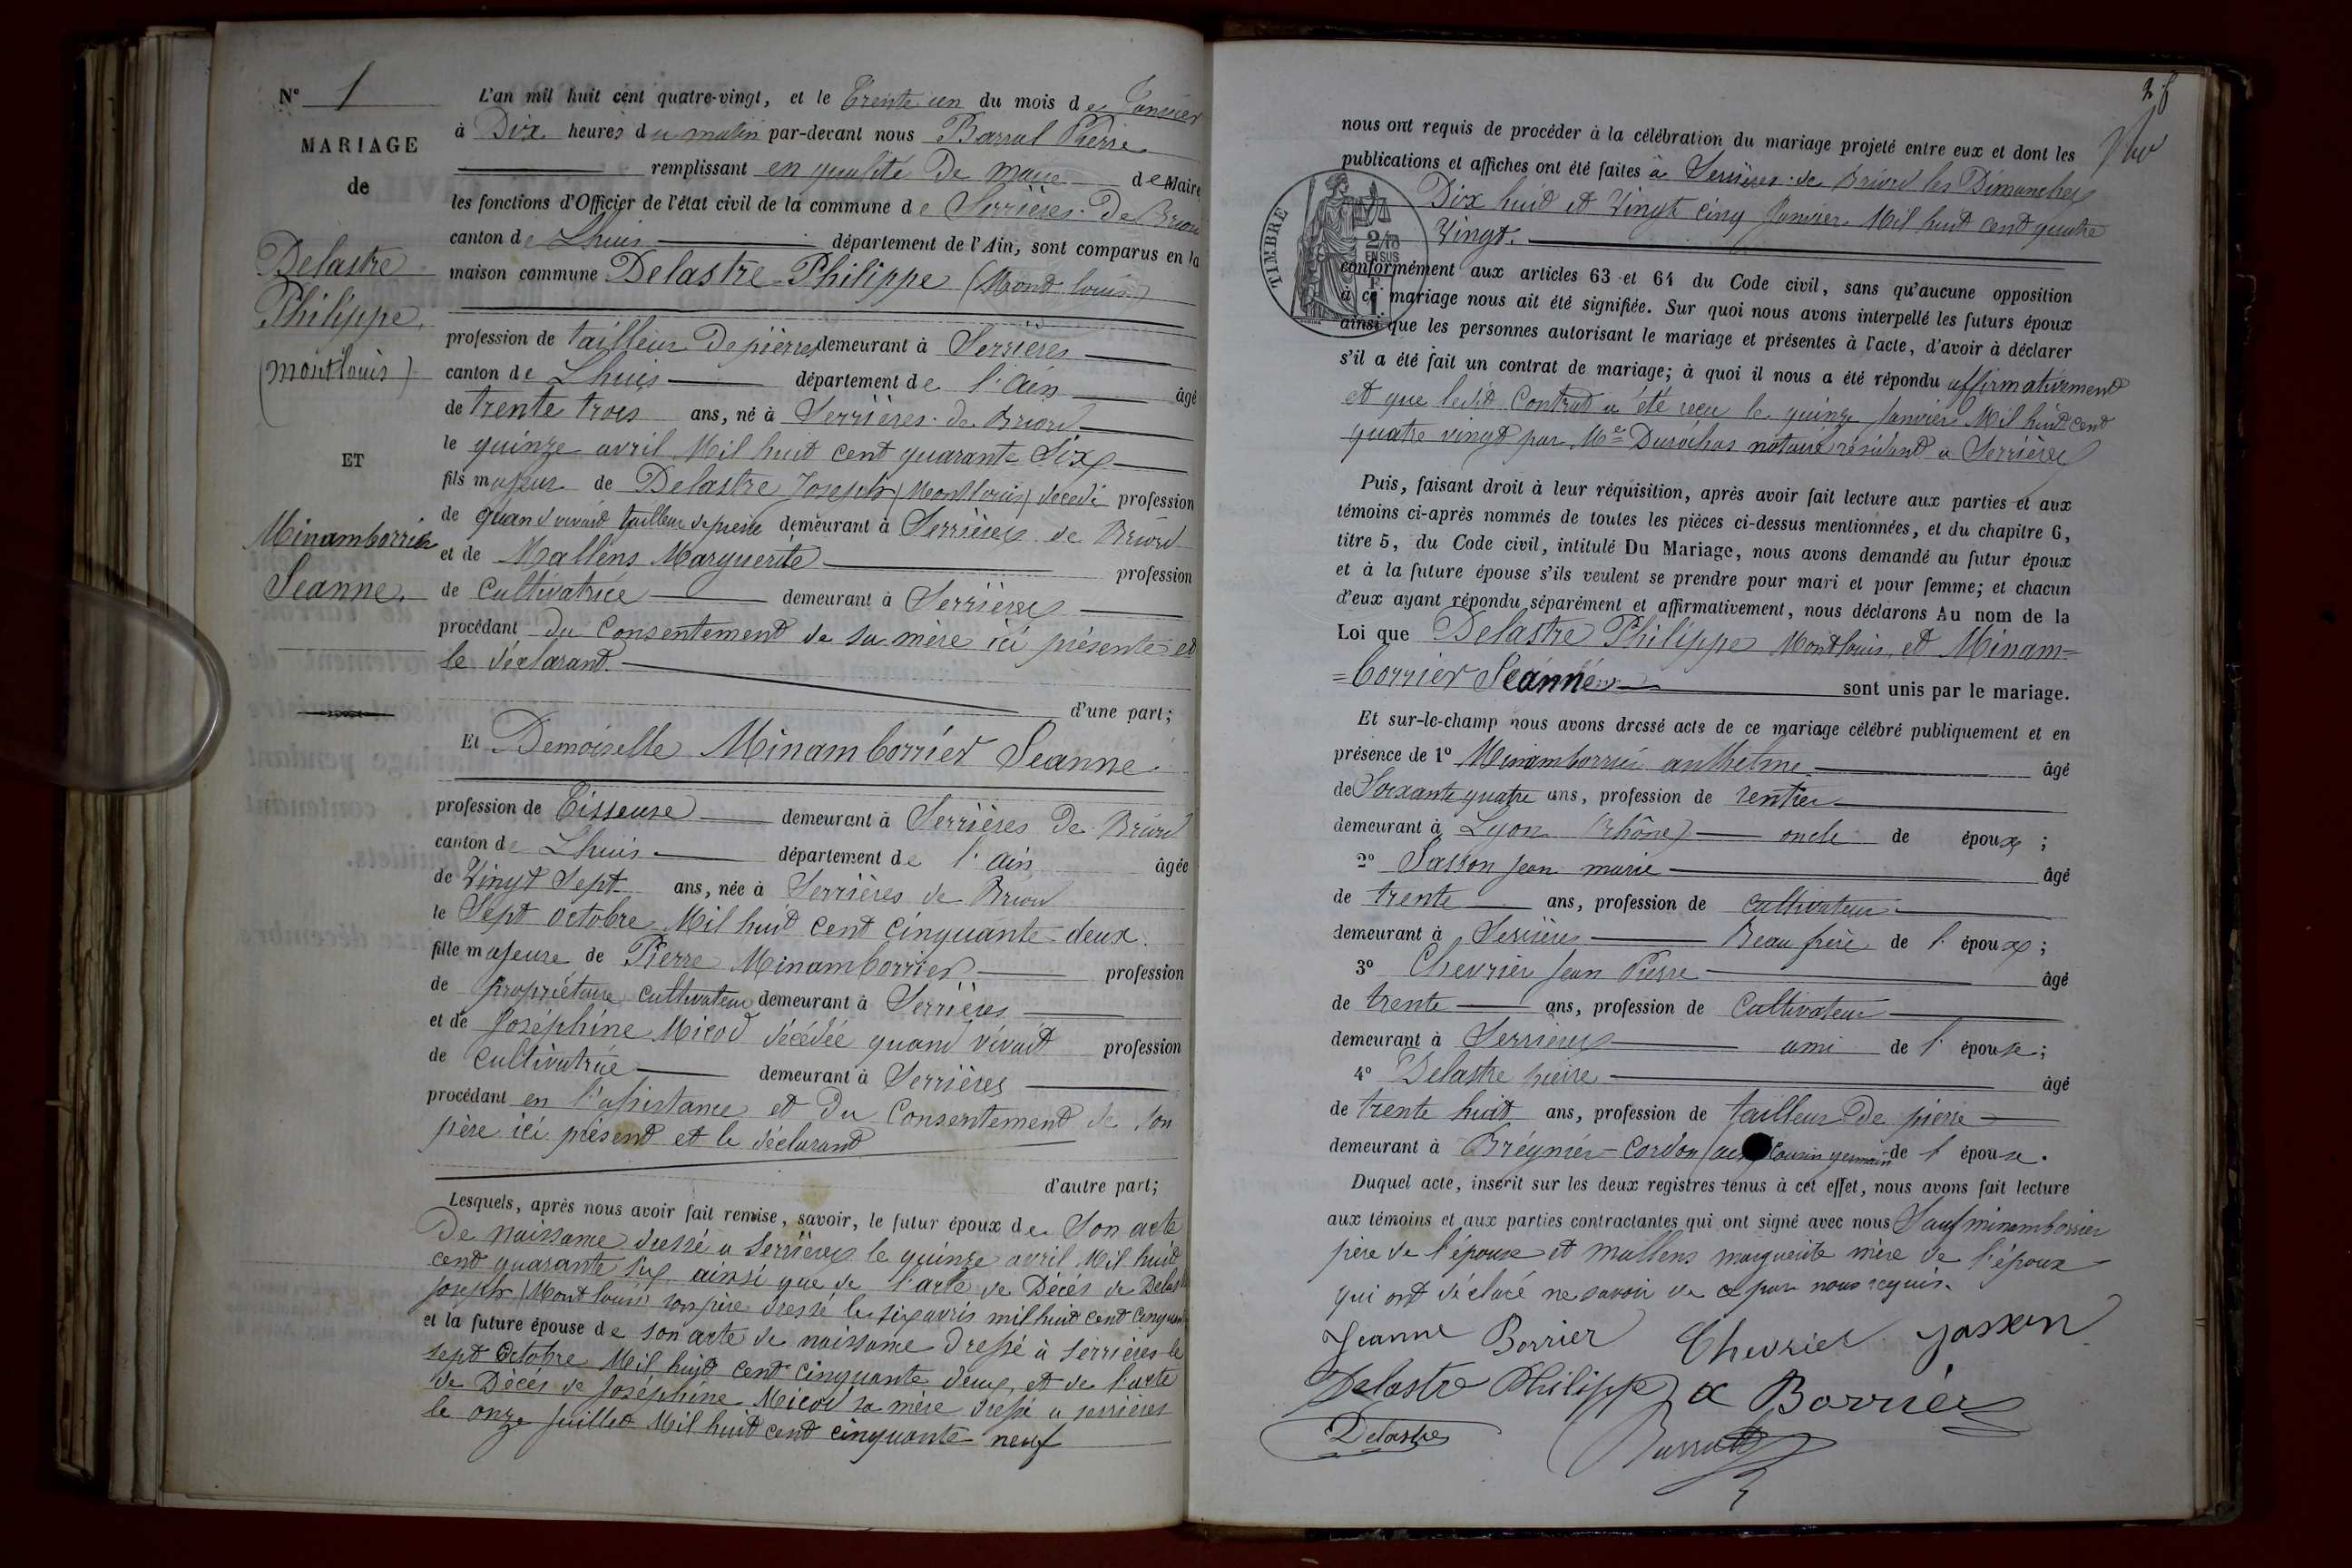 N° 1
MARIAGE
de
Delastre
Philippe
(montlouis)
ET
Minamborrier
Jeanne.
L'an mil huit cent quatre-vingt, et le Trente un du mois de Janvier
à Dix heures du matin par-devant nous Barral Pierre
remplissant en qualité De maire de Maire
les fonctions d'Officier de l'état civil de la commune de Serrières-De Briord
canton de Lhuis département de l'Ain, sont comparus en la
maison commune Delastre Philippe (Mont louis)
profession de tailleur De pierre demeurant à Serrières
canton de Lhuis département de l'Ain âgé
de trente trois ans, né à Serrières-de Briord
le quinze avril Mil huit cent quarante Six
fils majeur de Delastre Joseph (Montlouis) décédé profession
de quand vivait tailleur de pierre demeurant à Serrières de Briord
et de Mallens Marguerite profession
de Cultivatrice demeurant à Serrières
procédant du Consentement de sa mère ici présente et
le déclarant.
d'une part;
Et Demoiselle Minamborrier Jeanne
profession de Tisseuse demeurant à Serrières De Briord
canton de Lhuis département de l'ain âgée
de Vingt Sept ans, née à Serrières de Briord
le Sept octobre Mil huit cent cinquante deux.
fille majeure de Pierre Minamborrier profession
de propriétaire cultivateur demeurant à Serrières
et de Joséphine Micod décédée quand vivait profession
de cultivatrice demeurant à Serrières
procédant en l'assistance et du Consentement de son
père ici présent et le déclarant
d'autre part;
Lesquels, après nous avoir fait remise, savoir, le futur époux de Son acte
De naissance dressé a Serrières le quinze avril Mil huit
cent quarante six ainsi que de l'acte de Décés de Delast
Joseph (Mont louis) son père dressé le six mil huit cent cinquan
et la future épouse de son acte de naissance dressé à Serrières le
sept Octobre Mil huit cent cinquante deux, et de l'acte
de Décès de Joséphine Micod sa mère dressé a serrières
le onze Juillet Mil huit cent cinquante neuf
28
nous ont requis de procéder à la célébration du mariage projeté entre eux et dont les
publications et affiches ont été faites à Serrières-de Briord les Dimanches
Dix huit et Vingt cinq Janvier Mil huit cent quatre
Vingt.
TIMBRE
2/10
EN SUS
conformément aux articles 63 et 64 du Code civil, sans qu'aucune opposition
à ce mariage nous ait été signifiée. Sur quoi nous avons interpellé les futurs époux
ainsi que les personnes autorisant le mariage et présentes à l'acte, d'avoir à déclarer
s'il a été fait un contrat de mariage; à quoi il nous a été répondu affirmativement
et que ledit Contrat a été reçu le quinze Janvier Mil huit cent
quatre vingt par Me notaire résidant a Serrières
Puis, faisant droit à leur réquisition, après avoir fait lecture aux parties et aux
témoins ci-après nommés de toutes les pièces ci-dessus mentionnées, et du chapitre 6,
titre 5, du Code civil, intitulé Du Mariage, nous avons demandé au futur époux
et à la future épouse s'ils veulent se prendre pour mari et pour femme; et chacun
d'eux ayant répondu séparément et affirmativement, nous déclarons Au nom de la
Loi que Delastre Philippe Montlouis et Minam=
=borrier Jeanne sont unis par le mariage.
Et sur-le-champ nous avons dressé acte de ce mariage célébré publiquement et en
présence de 1° Minamborrier anthelme âgé
de Soixante quatre ans, profession de rentier
demeurant à Lyon (Rhône) oncle de époux ;
2° Jasson Jean marie âgé
de trente ans, profession de cultivateur
demeurant à Serrières Beau frère de l'époux ;
3° Chevrier Jean Pierre âgé
de trente ans, profession de Cultivateur
demeurant à Serrières ami de l'épouse;
4° Delastre pierre âgé
de trente huit ans, profession de tailleur De pierre
demeurant à Brégnier-Cordon cousin germain de l'épouse.
Duquel acte, inscrit sur les deux registres tenus à cet effet, nous avons fait lecture
aux témoins et aux parties contractantes qui ont signé avec nous Sauf minamborrier
père de l'épouse et mallens marguerite mère de l'époux
qui ont déclaré ne savoir de ce par nous requis.
Jeanne Borrier Chevrier Jasson
Delastre Philippe a Borrier
Delastre Barral